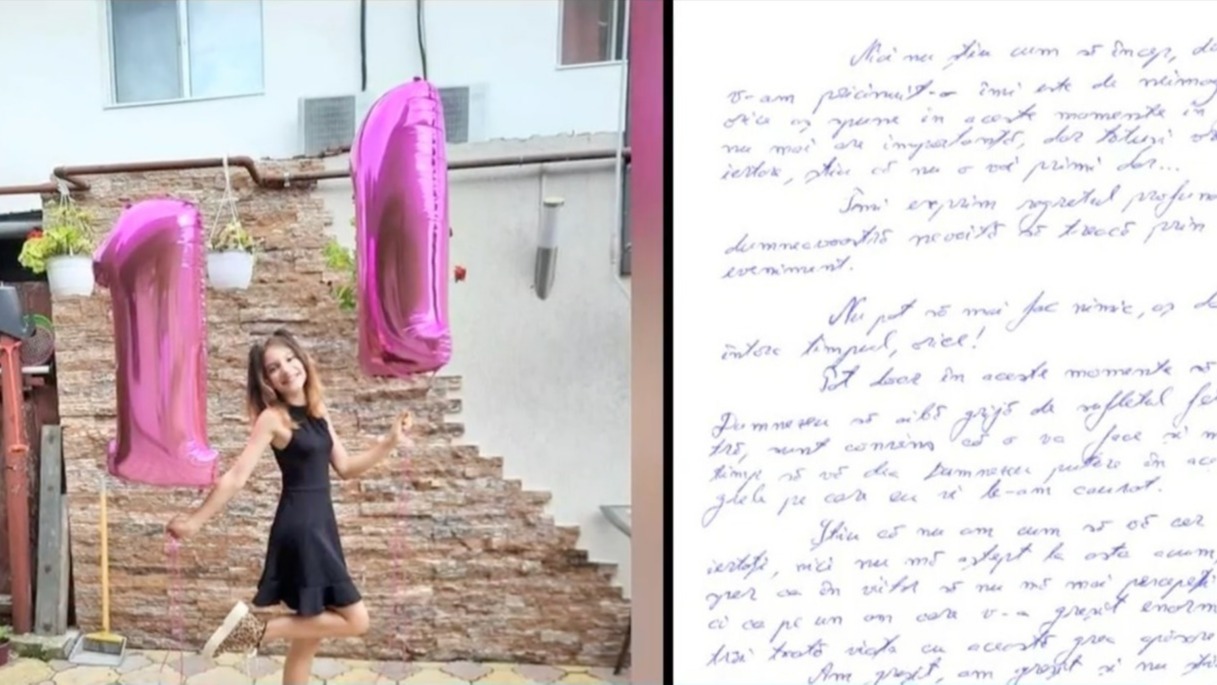 1 1
Nici nu știu cum să încep, du
v-am pricinuit-o îmi este de neimag
orice aș spune în aceste momente în
nu mai are importanță, dar totuși vă
iertare, știu că nu o voi primi dar...
Îmi exprim regretul profun
dumneavoastră nevoită să treacă prin
eveniment.
Nu pot să mai fac nimic, aș d
întorc timpul, orice!
Pot doar în aceste momente să
Dumnezeu să aibă grijă de sufletul fe
tră, sunt convins că o va face și m
timp să vă dea Dumnezeu putere în ac
grele pe care eu vi le-am cauzat.
Știu că nu am cum să vă cer
iertați, nici nu mă aștept la asta acum,
sper ca în viitor să nu mă mai percepeți
ci ca pe un om care v-a greșit enorm
trăi toată viața cu această grea apăsare
Am greșit, am greșit și nu știu